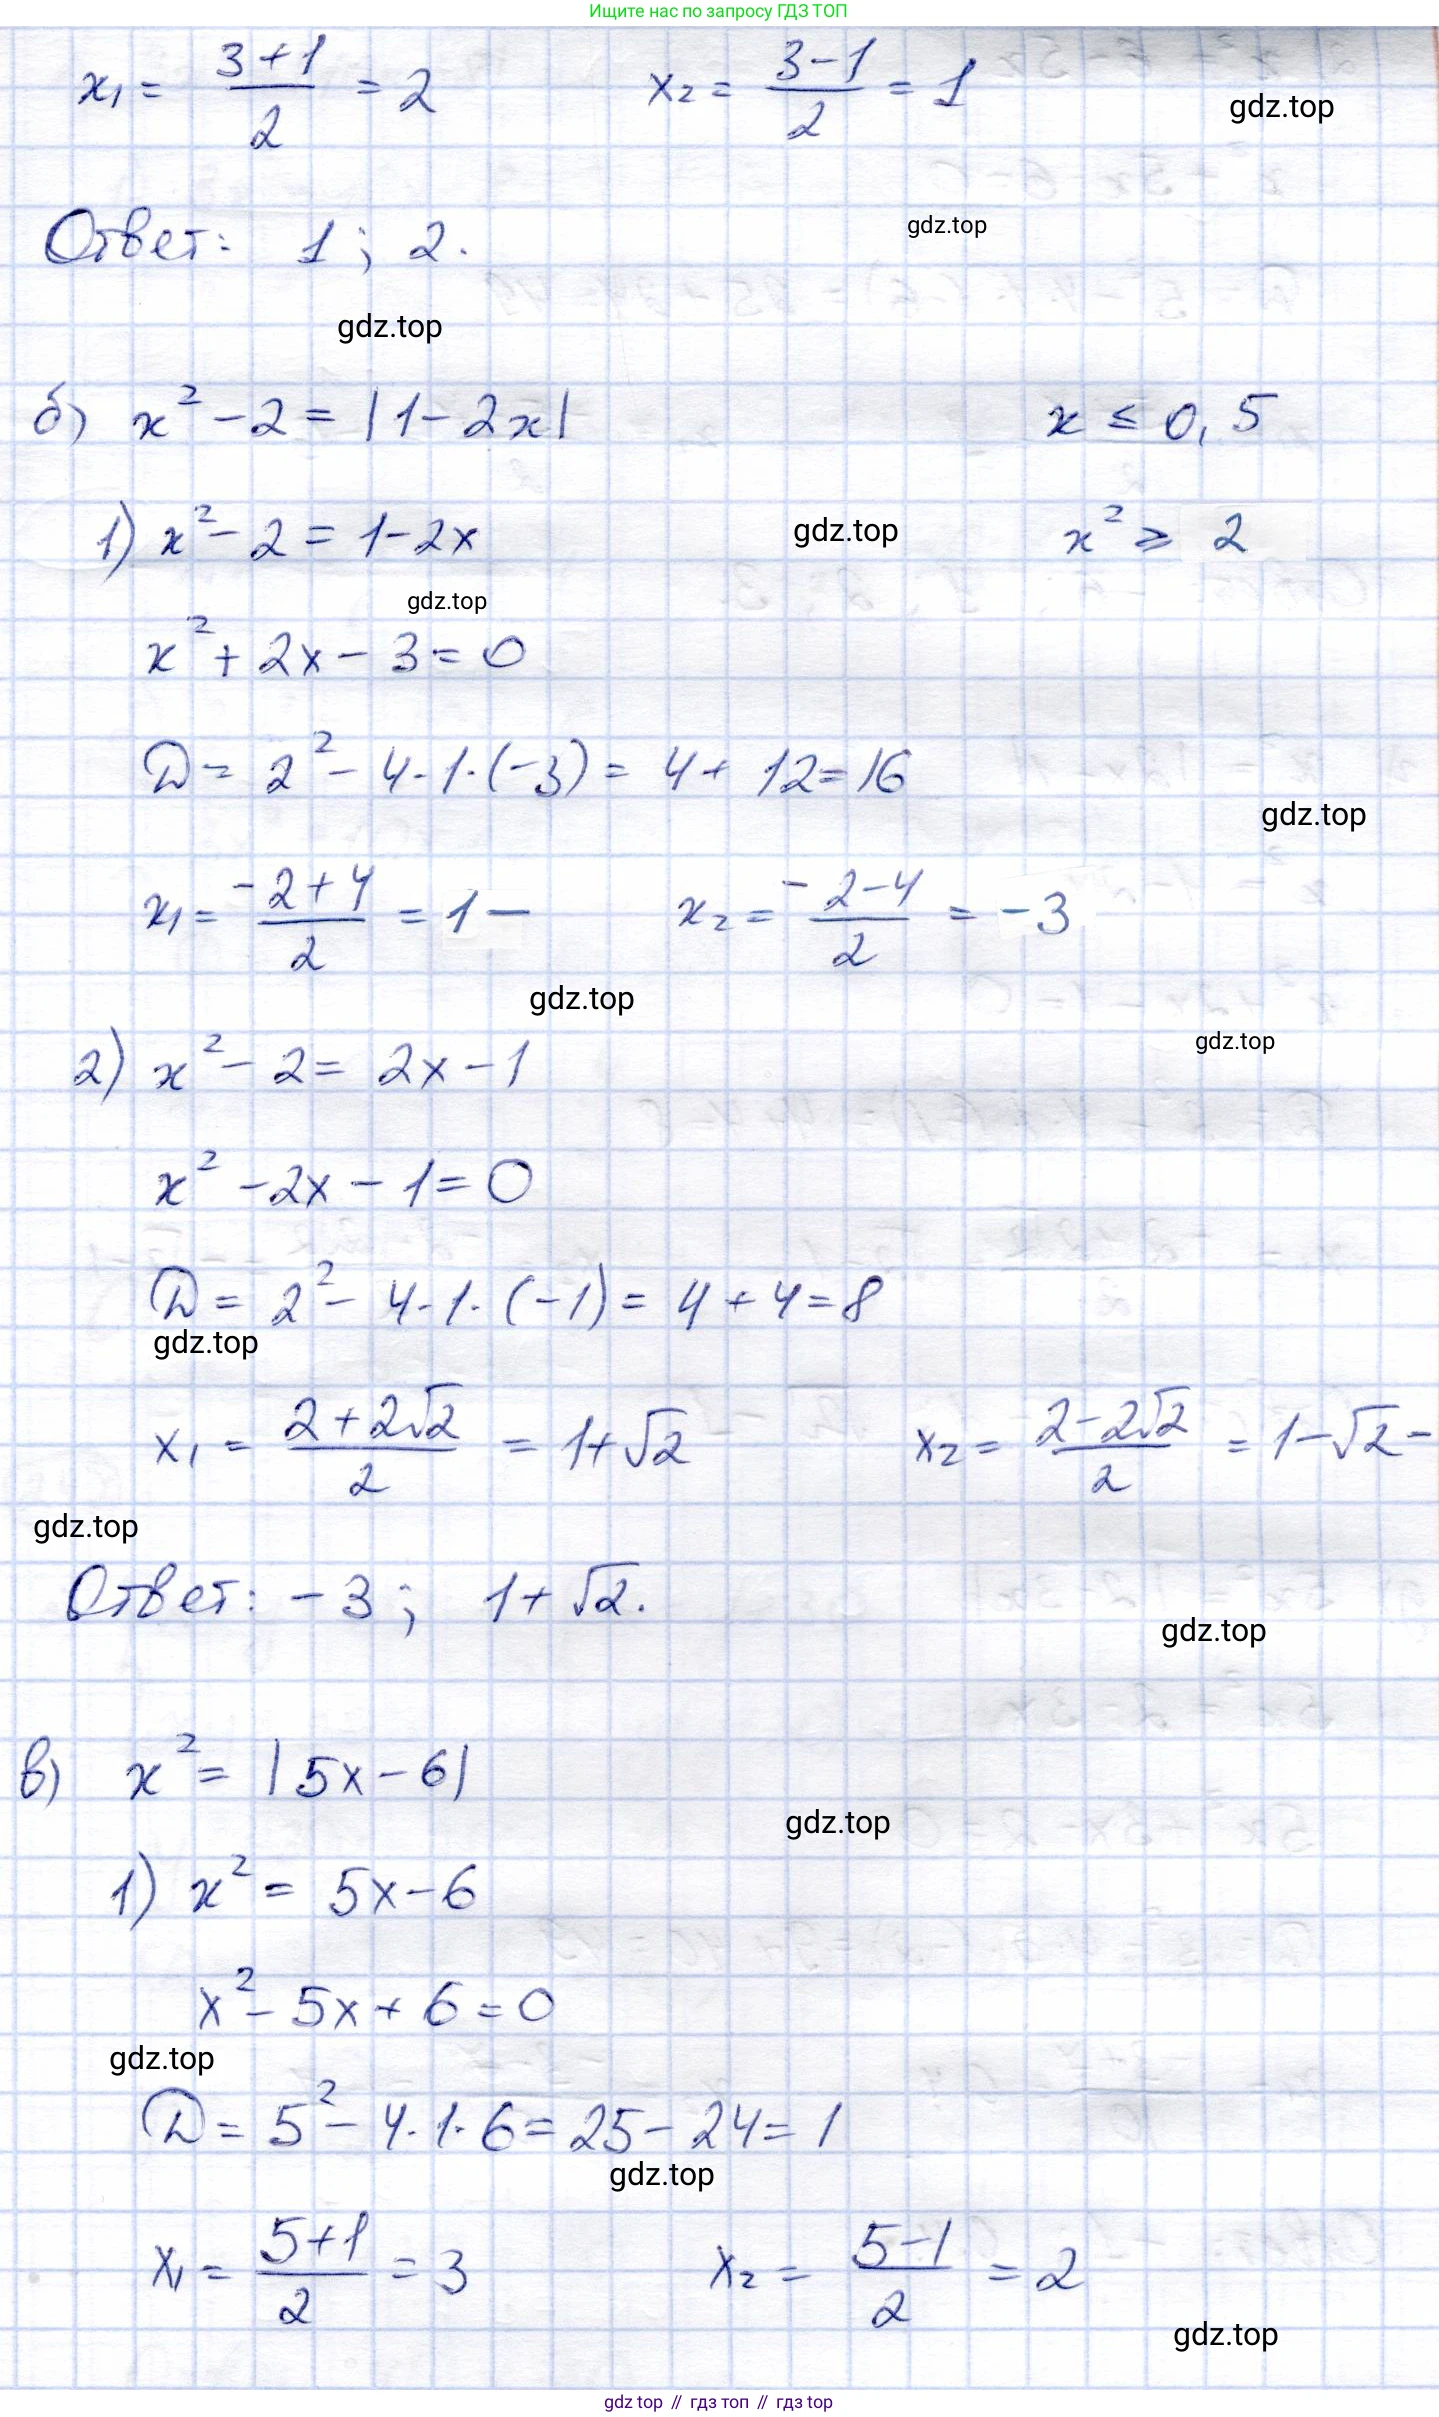 Ищите нас по запросу ГДЗ ТОП
x₁ = (3+1)/2 = 2    x₂ = (3-1)/2 = 1
gdz.top
Ответ: 1; 2.
gdz.top
gdz.top
б) x² - 2 = |1 - 2x|    x ≤ 0,5
1) x² - 2 = 1 - 2x    gdz.top    x² ≥ 2
gdz.top
x² + 2x - 3 = 0
D = 2² - 4·1·(-3) = 4 + 12 = 16
gdz.top
x₁ = (-2+4)/2 = 1 -    x₂ = (-2-4)/2 = -3
gdz.top
gdz.top
2) x² - 2 = 2x - 1
x² - 2x - 1 = 0
D = 2² - 4·1·(-1) = 4 + 4 = 8
gdz.top
x₁ = (2+2√2)/2 = 1+√2    x₂ = (2-2√2)/2 = 1-√2 -
gdz.top
Ответ: -3; 1+√2.
gdz.top
в) x² = |5x - 6|
gdz.top
1) x² = 5x - 6
x² - 5x + 6 = 0
gdz.top
D = 5² - 4·1·6 = 25 - 24 = 1
gdz.top
x₁ = (5+1)/2 = 3    x₂ = (5-1)/2 = 2
gdz.top
gdz top // гдз топ // гдз top